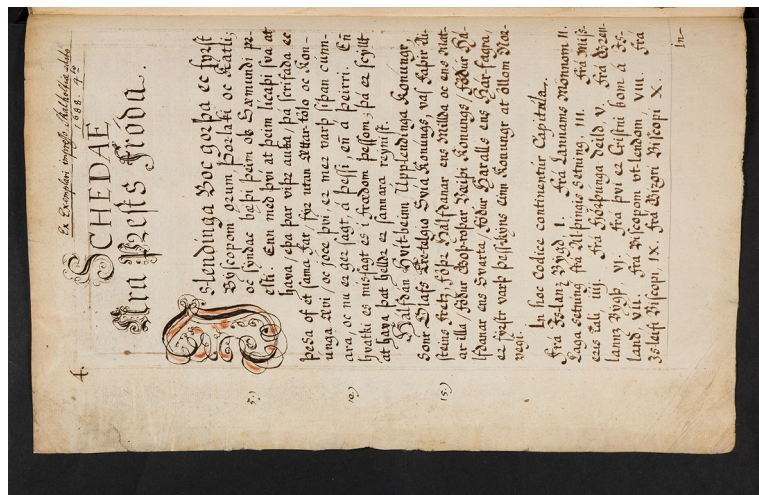 4.
Ex Exemplari impresso Skalholtiæ editо
1688. 4to
SCHEDAE
Ara Prests Fróda.
Islendinga Boc gorþa ec fyrst
Byscopom orum Þorlaki oc Katli;
oc syndac bæþi þeim oc Sæmundi pre-
sti. Enn með þvi at þeim licaþi sva at
hava / eþa þar viþr auka / þa scrifada ec
5.)
þesa of et sama far / fyr utan Attar-tölo oc Kon-
unga Ævi / oc jöce þvi, er mer varþ siþan cunn-
ara, oc nu er ger sagt, á þessi, en á þeirri. En
hvatki es missagt es i frædom þessom; þá er scyllt
10.)
at hava þat helldr er sannara reynist.
Halfdan Hvit-beinn Upplendinga Konungr,
Sonr Olafs Tre-telgio Svia Konungs, vas Faþir Ai-
steins fretz, föþr Halfdanar ens Millda oc ens Mat-
ar illa / födur Goþ-roþar Veiþi Konungs / födur Há-
15.)
lfdanar ens Svarta / födur Haralls ens Hár-fagra,
er fyrstr varþ þess kyns einn Konungr at öllom Nor-
vegi.
In hoc Codice continentur Capitula.
Frá Is-lanz Bygd I. Frá Lannams Mönnom II.
Laga setning frá Alþingis setning. III. Frá Miss-
eris tali. iiij. Frá Fiörþunga deilld V. Frá Græn-
lannz Bygþ. VI. Frá þvi er Cristni kom á Is-
land, VII. Frá Biscopom ut-lendom VIII. Frá
Is-leifi Biscopi, IX. Frá Gizori Biscopi X.
In-